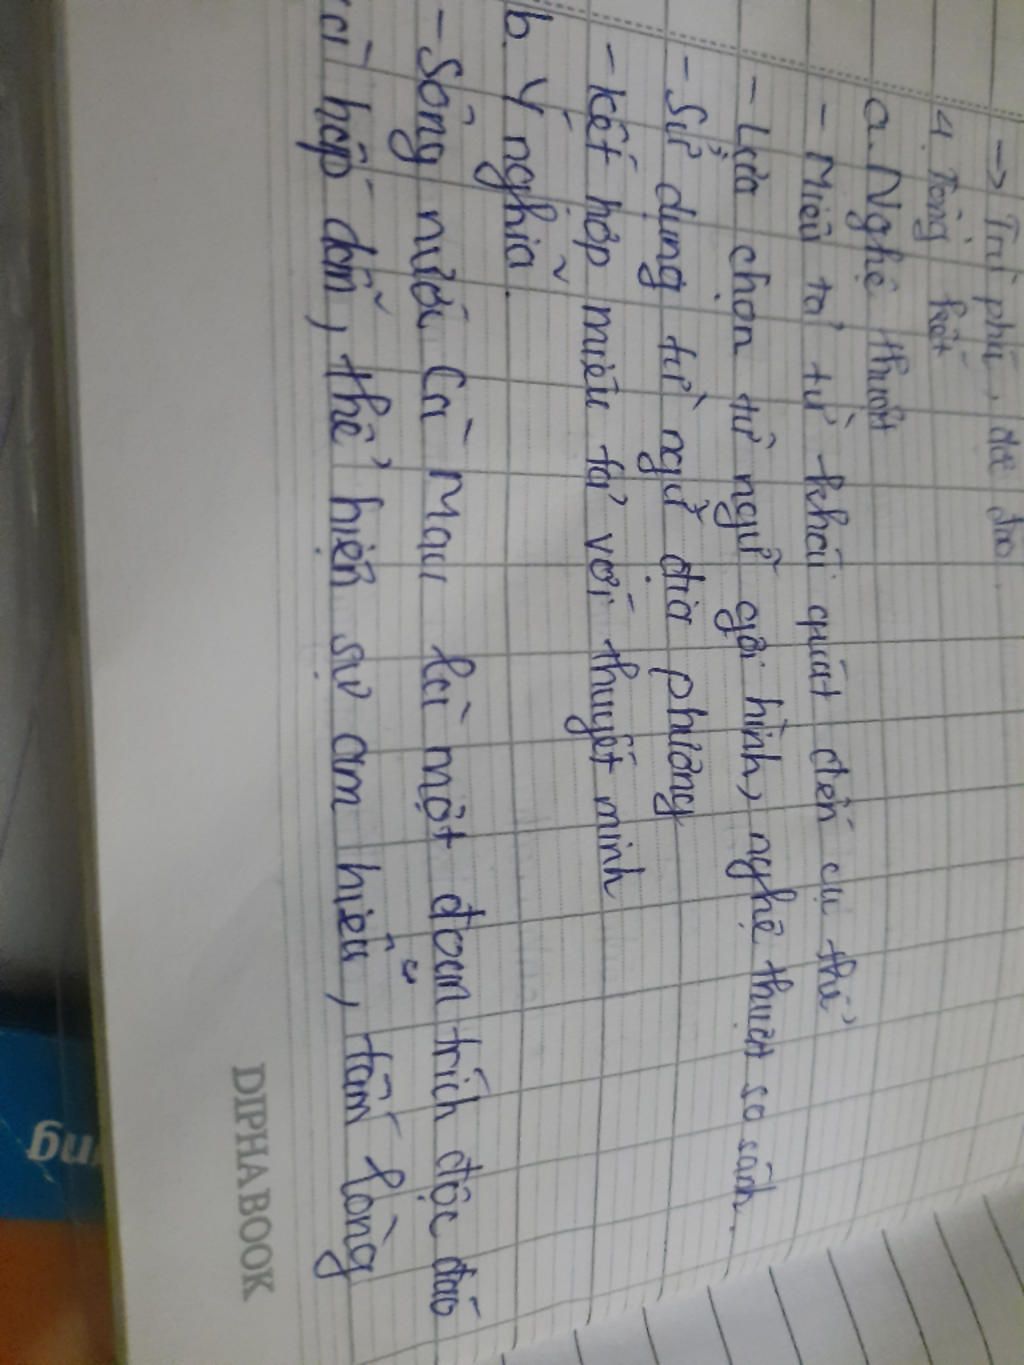 → Trù phú, độc đáo.
4. Tổng kết
a. Nghệ thuật
- Miêu tả từ khái quát đến cụ thể
- Lựa chọn từ ngữ gợi hình, nghệ thuật so sánh.
- Sử dụng từ ngữ địa phương
- kết hợp miêu tả với thuyết minh
b. Ý nghĩa.
- Sông nước Cà Mau là một đoạn trích độc đáo
và hấp dẫn, thể hiện sự am hiểu, tấm lòng
DIPHA BOOK